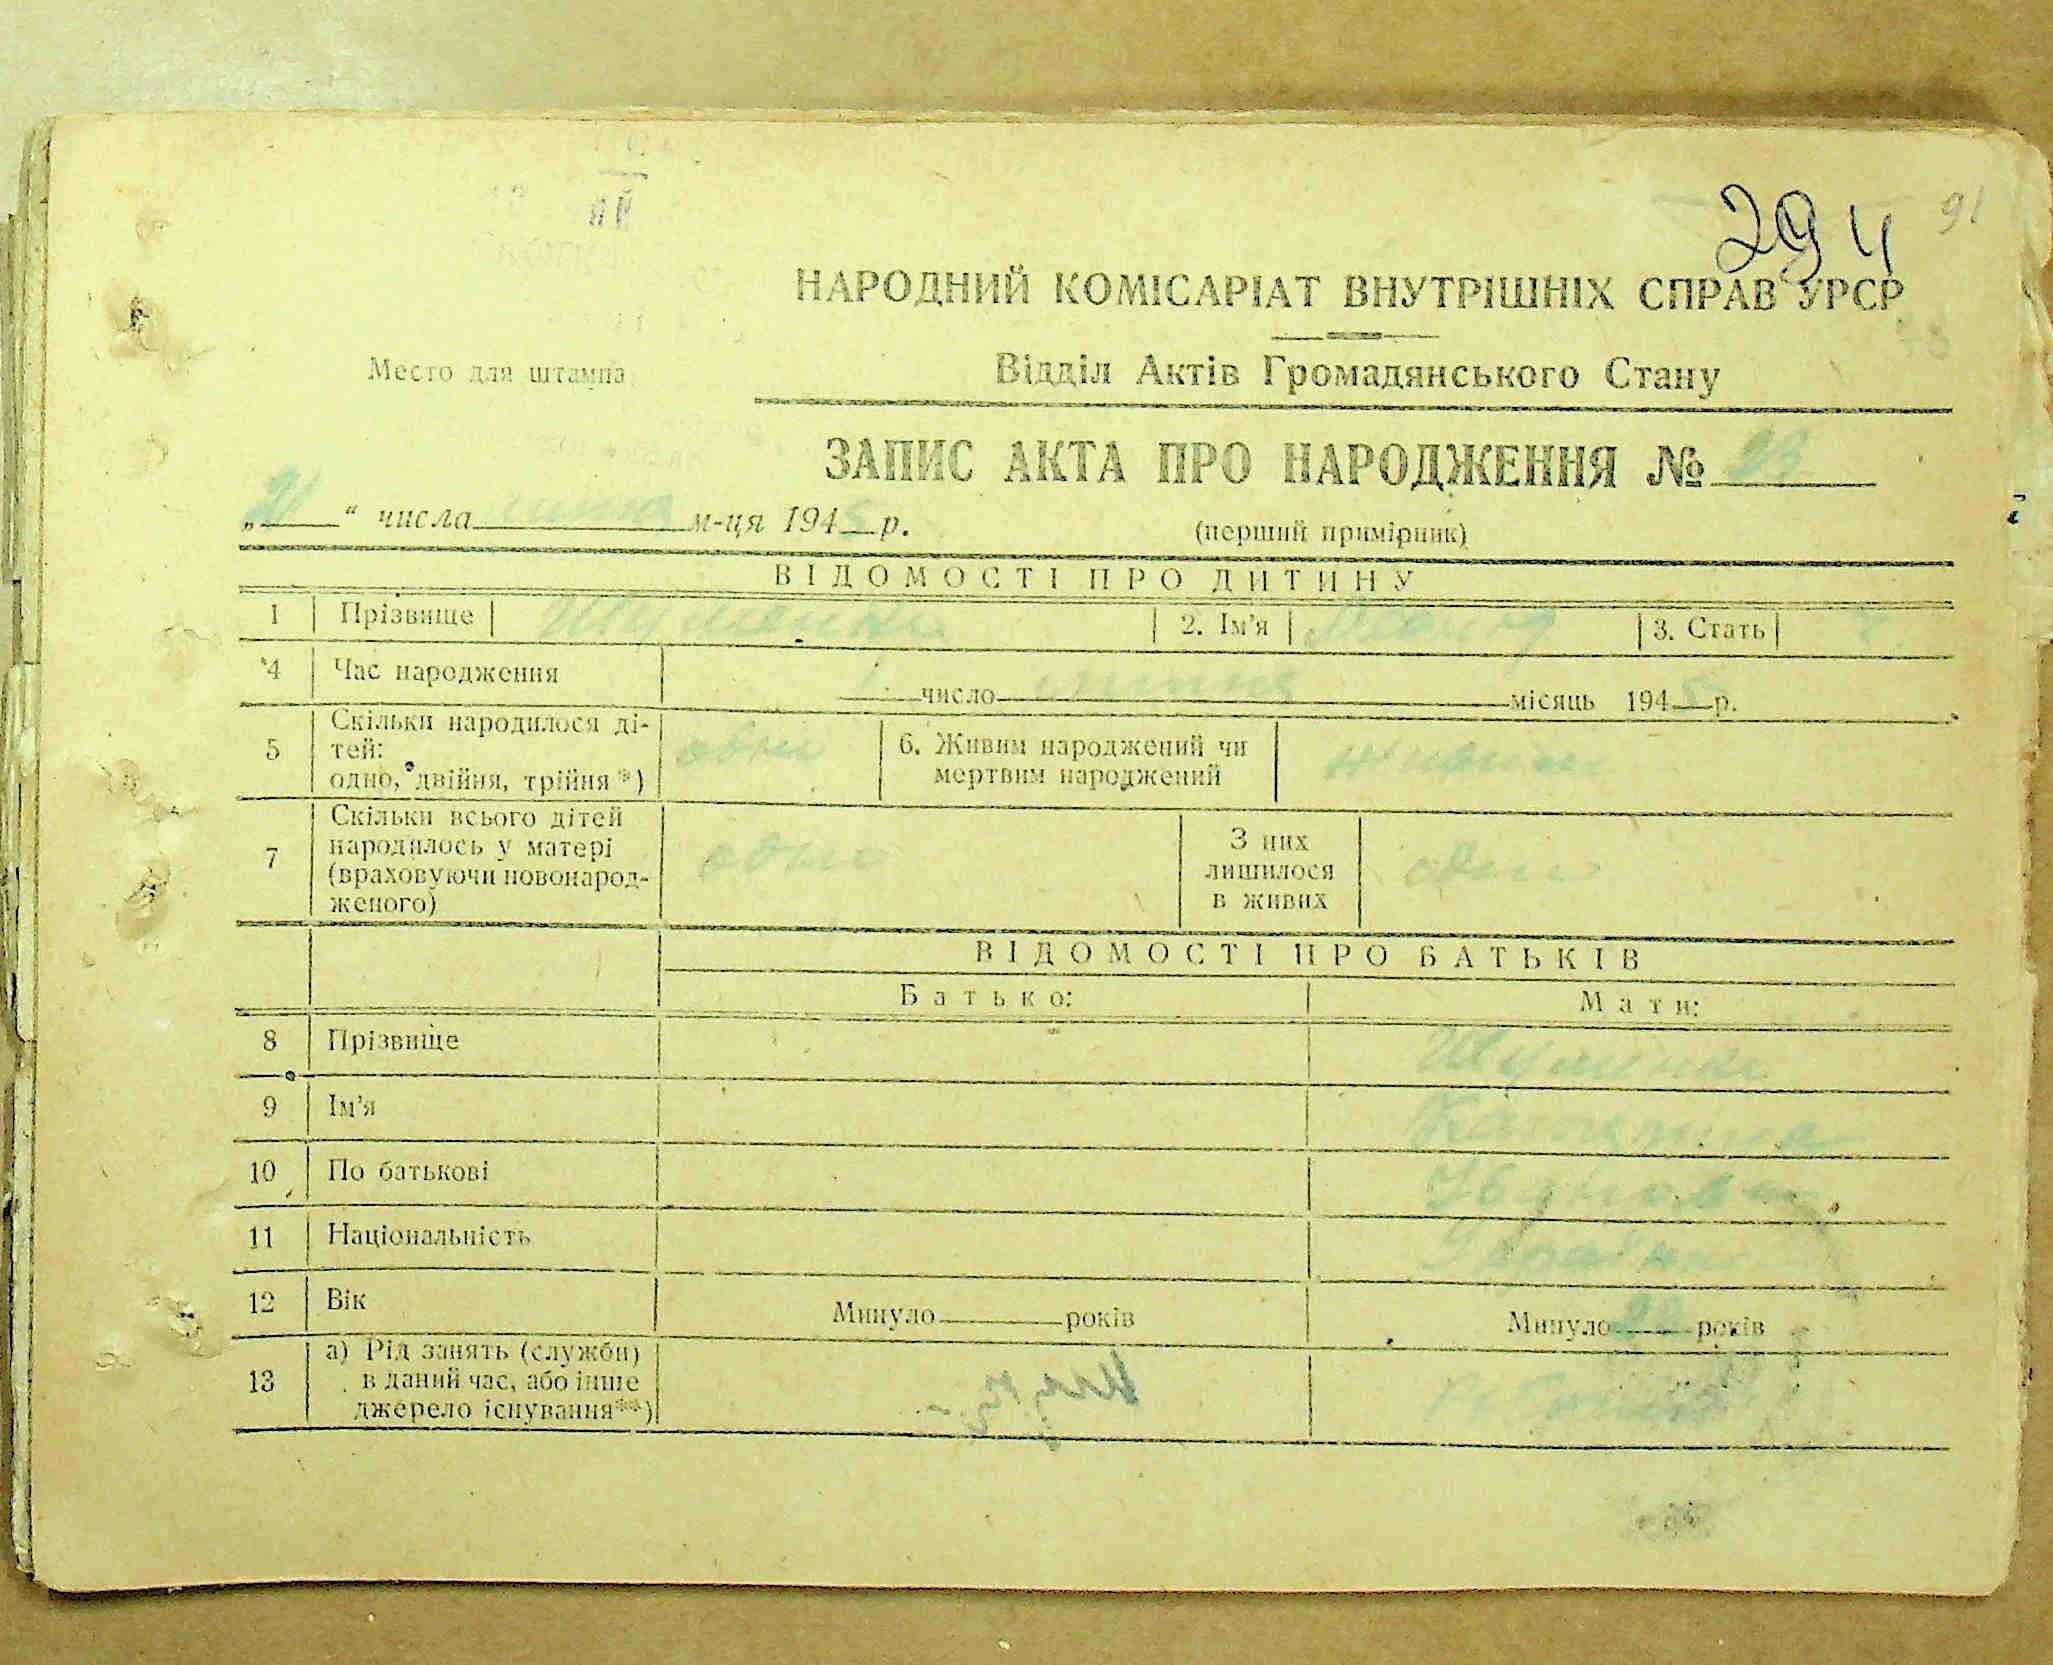 294 91
НАРОДНИЙ КОМІСАРІАТ ВНУТРІШНІХ СПРАВ УРСР
Место для штампа
Відділ Актів Громадянського Стану
ЗАПИС АКТА ПРО НАРОДЖЕННЯ № 23
„21“ числа липня м-ця 1945 р.
(перший примірник)
ВІДОМОСТІ ПРО ДИТИНУ
1 Прізвище Шуменко 2. Ім'я 3. Стать
4 Час народження число місяць 1945 р.
5 Скільки народилося ді-
тей:
одно, двійня, трійня *) одно
6. Живим народжений чи
мертвим народжений живим
7 Скільки всього дітей
народилось у матері
(враховуючи новонарод-
женого) одно
З них
лишилося
в живих одно
ВІДОМОСТІ ПРО БАТЬКІВ
Батько: Мати:
8 Прізвище Шуменко
9 Ім'я Катерина
10 По батькові
11 Національність Українка
12 Вік Минуло років Минуло 22 років
13 а) Рід занять (служби)
в даний час, або інше
джерело існування**)